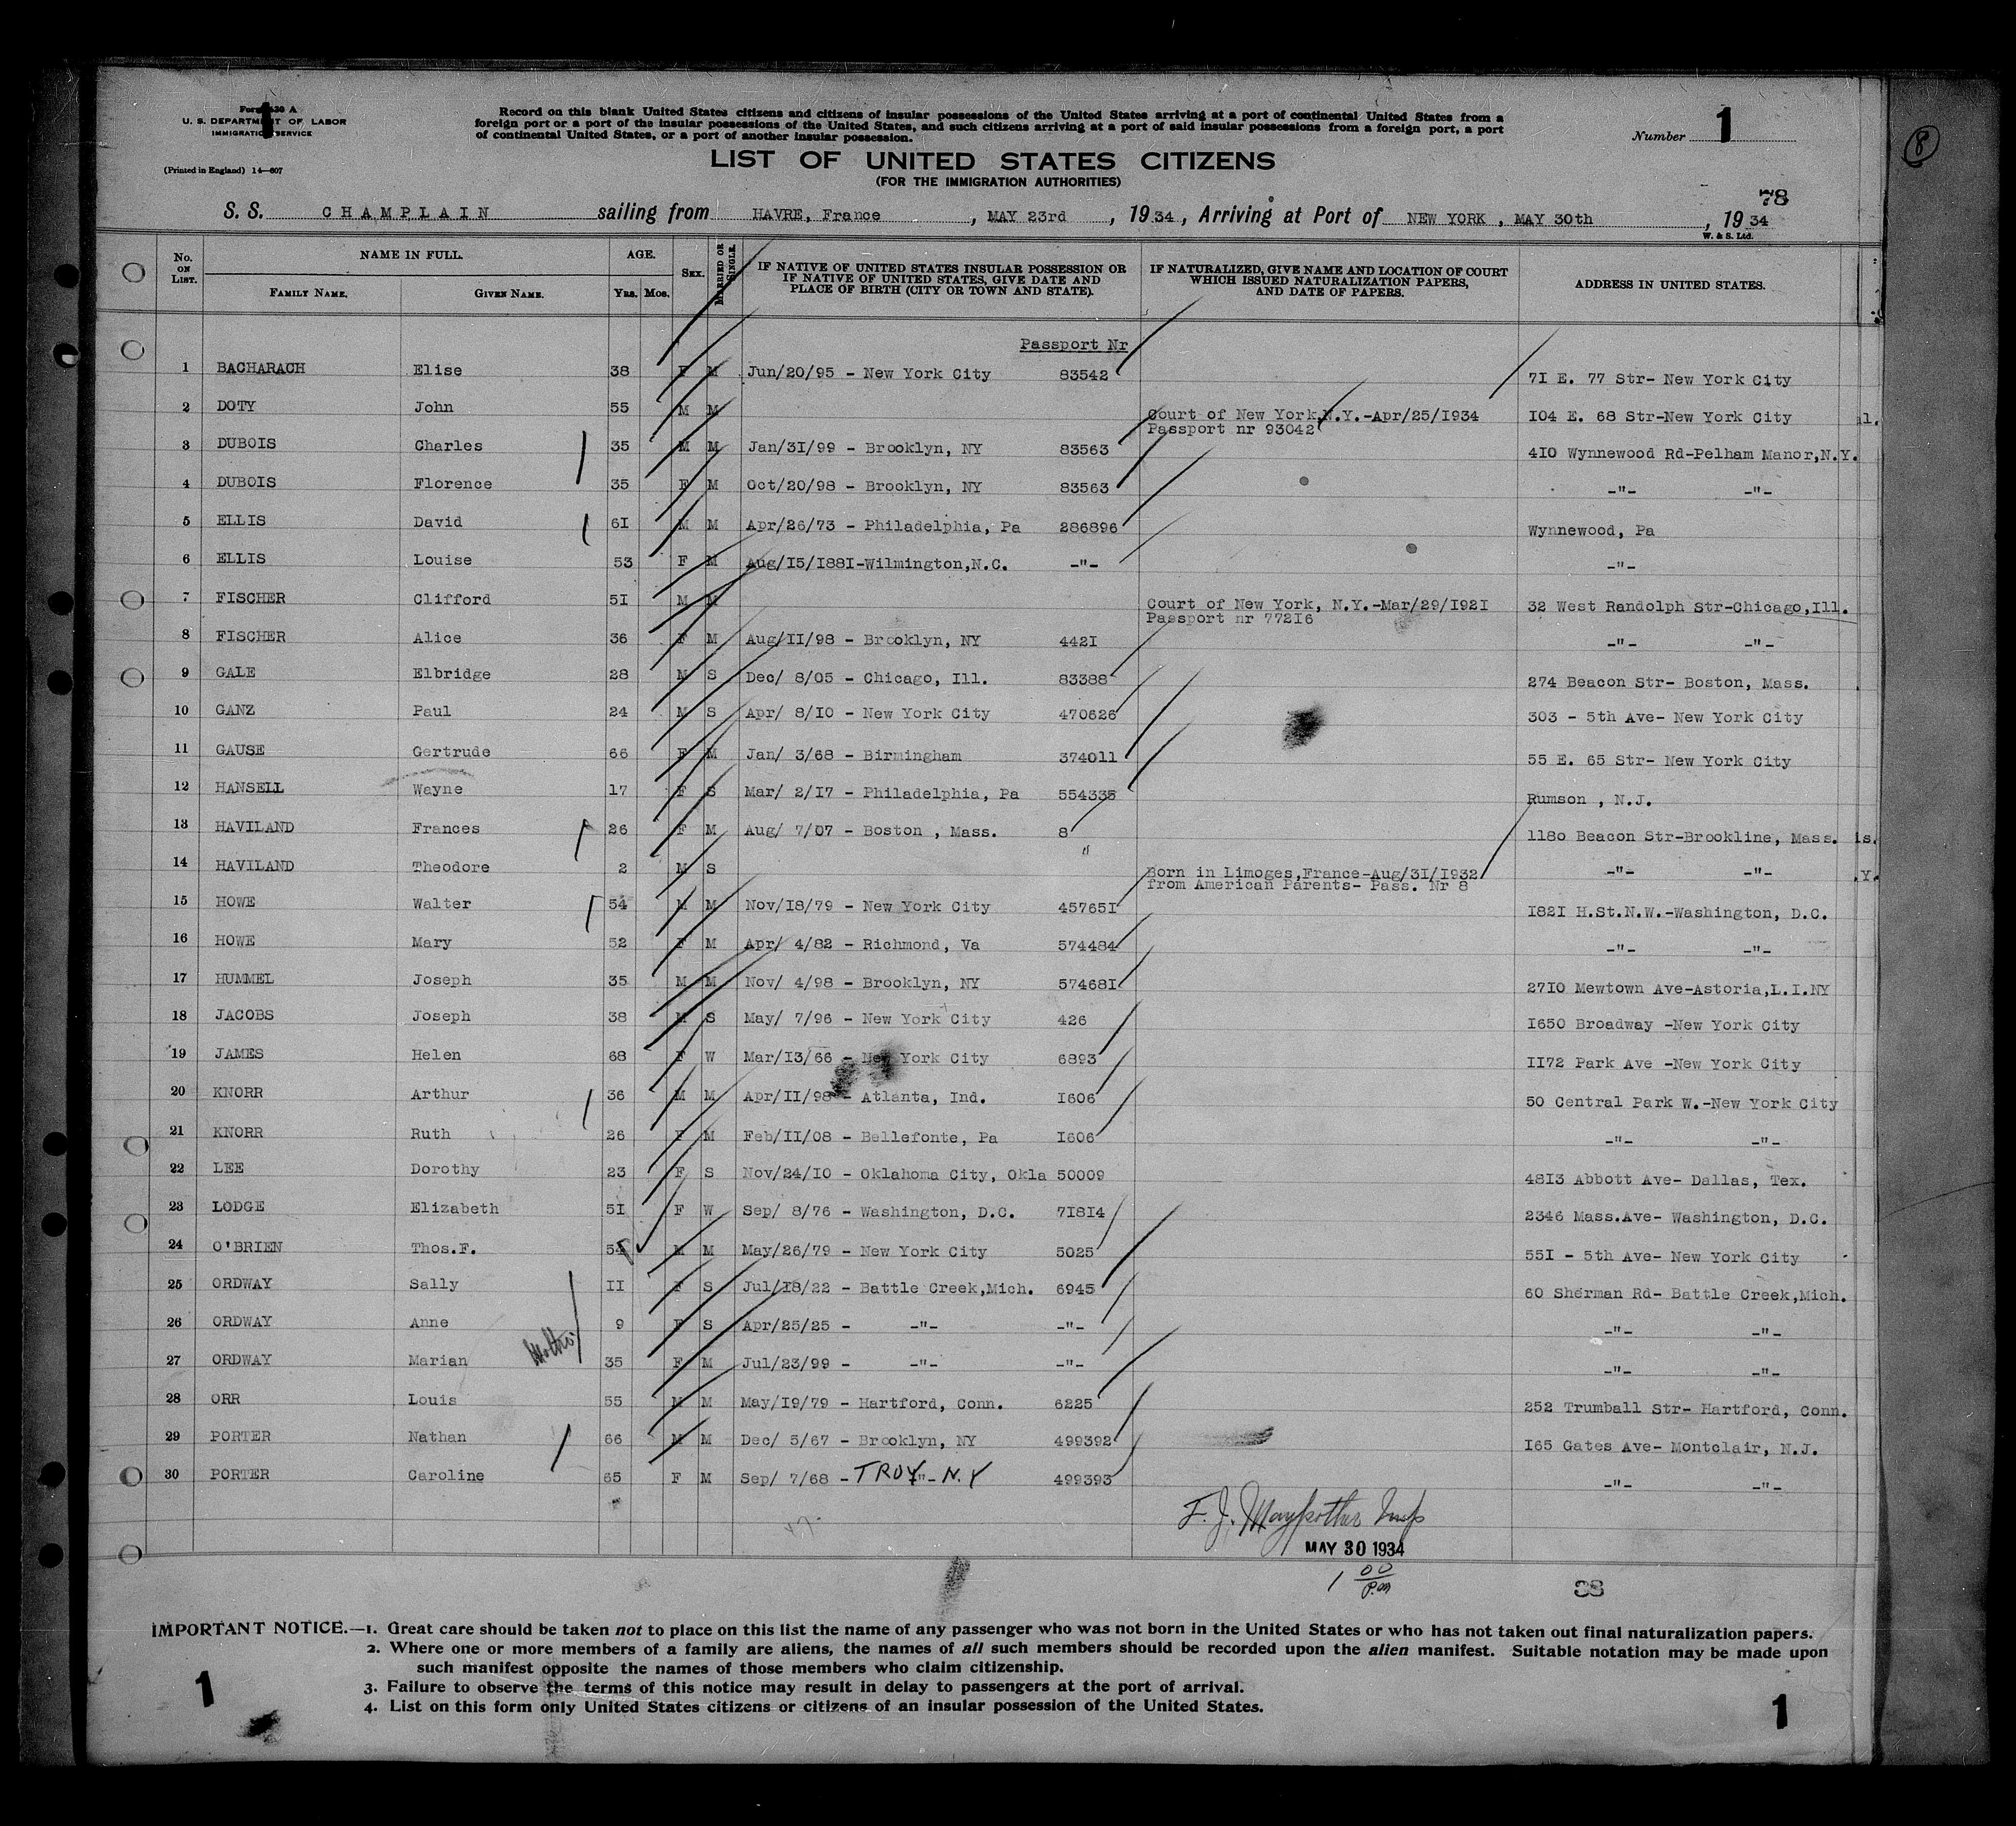 Form 630 A
U. S. DEPARTMENT OF LABOR
IMMIGRATION SERVICE
(Printed in England) 14—607
Record on this blank United States citizens and citizens of insular possessions of the United States arriving at a port of continental United States from a
foreign port or a port of the insular possessions of the United States, and such citizens arriving at a port of said insular possessions from a foreign port, a port
of continental United States, or a port of another insular possession.
Number 1
8
LIST OF UNITED STATES CITIZENS
(FOR THE IMMIGRATION AUTHORITIES)
78
S. S. CHAMPLAIN sailing from HAVRE, France, MAY 23rd, 1934, Arriving at Port of NEW YORK, MAY 30th, 1934
W. & S. Ltd.
No. ON LIST. NAME IN FULL. FAMILY NAME. GIVEN NAME. AGE. YRS. MOS. SEX. MARRIED OR SINGLE. IF NATIVE OF UNITED STATES INSULAR POSSESSION OR IF NATIVE OF UNITED STATES, GIVE DATE AND PLACE OF BIRTH (CITY OR TOWN AND STATE). IF NATURALIZED, GIVE NAME AND LOCATION OF COURT WHICH ISSUED NATURALIZATION PAPERS, AND DATE OF PAPERS. ADDRESS IN UNITED STATES.
Passport Nr
1 BACHARACH Elise 38 F M Jun/20/95 - New York City 83542 71 E. 77 Str- New York City
2 DOTY John 55 M M Court of New York,N.Y.-Apr/25/1934 104 E. 68 Str-New York City
Passport nr 93042
3 DUBOIS Charles 35 M M Jan/31/99 - Brooklyn, NY 83563 410 Wynnewood Rd-Pelham Manor,N.Y.
4 DUBOIS Florence 35 F M Oct/20/98 - Brooklyn, NY 83563 -"- -"-
5 ELLIS David 61 M M Apr/26/73 - Philadelphia, Pa 286896 Wynnewood, Pa
6 ELLIS Louise 53 F M Aug/15/1881-Wilmington,N.C. -"- -"-
7 FISCHER Clifford 51 M M Court of New York, N.Y.-Mar/29/1921 32 West Randolph Str-Chicago,Ill.
Passport nr 77216
8 FISCHER Alice 36 F M Aug/11/98 - Brooklyn, NY 4421 -"- -"-
9 GALE Elbridge 28 M S Dec/ 8/05 - Chicago, Ill. 83388 274 Beacon Str- Boston, Mass.
10 GANZ Paul 24 M S Apr/ 8/10 - New York City 470626 303 - 5th Ave- New York City
11 GAUSE Gertrude 66 F M Jan/ 3/68 - Birmingham 374011 55 E. 65 Str- New York City
12 HANSELL Wayne 17 F S Mar/ 2/17 - Philadelphia, Pa 554335 Rumson , N.J.
13 HAVILAND Frances 26 F M Aug/ 7/07 - Boston , Mass. 8 1180 Beacon Str-Brookline, Mass.
14 HAVILAND Theodore 2 M S " Born in Limoges,France-Aug/31/1932 -"- -"-
from American Parents- Pass. Nr 8
15 HOWE Walter 54 M M Nov/18/79 - New York City 457651 1821 H.St.N.W.-Washington, D.C.
16 HOWE Mary 52 F M Apr/ 4/82 - Richmond, Va 574484 -"- -"-
17 HUMMEL Joseph 35 M M Nov/ 4/98 - Brooklyn, NY 574681 2710 Mewtown Ave-Astoria,L.I.NY
18 JACOBS Joseph 38 M S May/ 7/96 - New York City 426 1650 Broadway -New York City
19 JAMES Helen 68 F W Mar/13/66 - New York City 6893 1172 Park Ave -New York City
20 KNORR Arthur 36 M M Apr/11/98 - Atlanta, Ind. 1606 50 Central Park W.-New York City
21 KNORR Ruth 26 F M Feb/11/08 - Bellefonte, Pa 1606 -"- -"-
22 LEE Dorothy 23 F S Nov/24/10 - Oklahoma City, Okla 50009 4813 Abbott Ave- Dallas, Tex.
23 LODGE Elizabeth 51 F W Sep/ 8/76 - Washington, D.C. 71814 2346 Mass.Ave- Washington, D.C.
24 O'BRIEN Thos.F. 54 M M May/26/79 - New York City 5025 551 - 5th Ave- New York City
25 ORDWAY Sally 11 F S Jul/18/22 - Battle Creek,Mich. 6945 60 Sherman Rd- Battle Creek,Mich.
26 ORDWAY Anne 9 F S Apr/25/25 - -"- -"- -"- -"-
27 ORDWAY Marian Mother 35 F M Jul/23/99 - -"- -"- -"- -"-
28 ORR Louis 55 M M May/19/79 - Hartford, Conn. 6225 252 Trumball Str- Hartford, Conn.
29 PORTER Nathan 66 M M Dec/ 5/67 - Brooklyn, NY 499392 165 Gates Ave- Montclair, N.J.
30 PORTER Caroline 65 F M Sep/ 7/68 - TROY -"- N.Y 499393 -"- -"-
F. J. Maypother Insp
MAY 30 1934
1 00 P.m
88
IMPORTANT NOTICE.—1. Great care should be taken not to place on this list the name of any passenger who was not born in the United States or who has not taken out final naturalization papers.
2. Where one or more members of a family are aliens, the names of all such members should be recorded upon the alien manifest. Suitable notation may be made upon
such manifest opposite the names of those members who claim citizenship.
3. Failure to observe the terms of this notice may result in delay to passengers at the port of arrival.
4. List on this form only United States citizens or citizens of an insular possession of the United States.
1
1